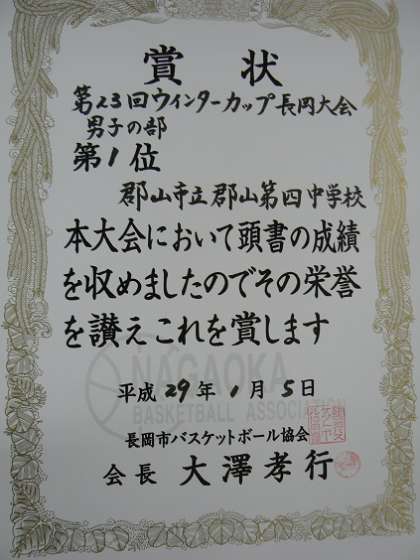 賞状
第23回ウィンターカップ長岡大会
男子の部
第1位
郡山市立郡山第四中学校
本大会において頭書の成績
を収めましたのでその栄誉
を讃えこれを賞します
NAGAOKA
BASKETBALL ASSOCIATION
平成29年1月5日
長岡市バスケットボール協会
会長 大澤孝行